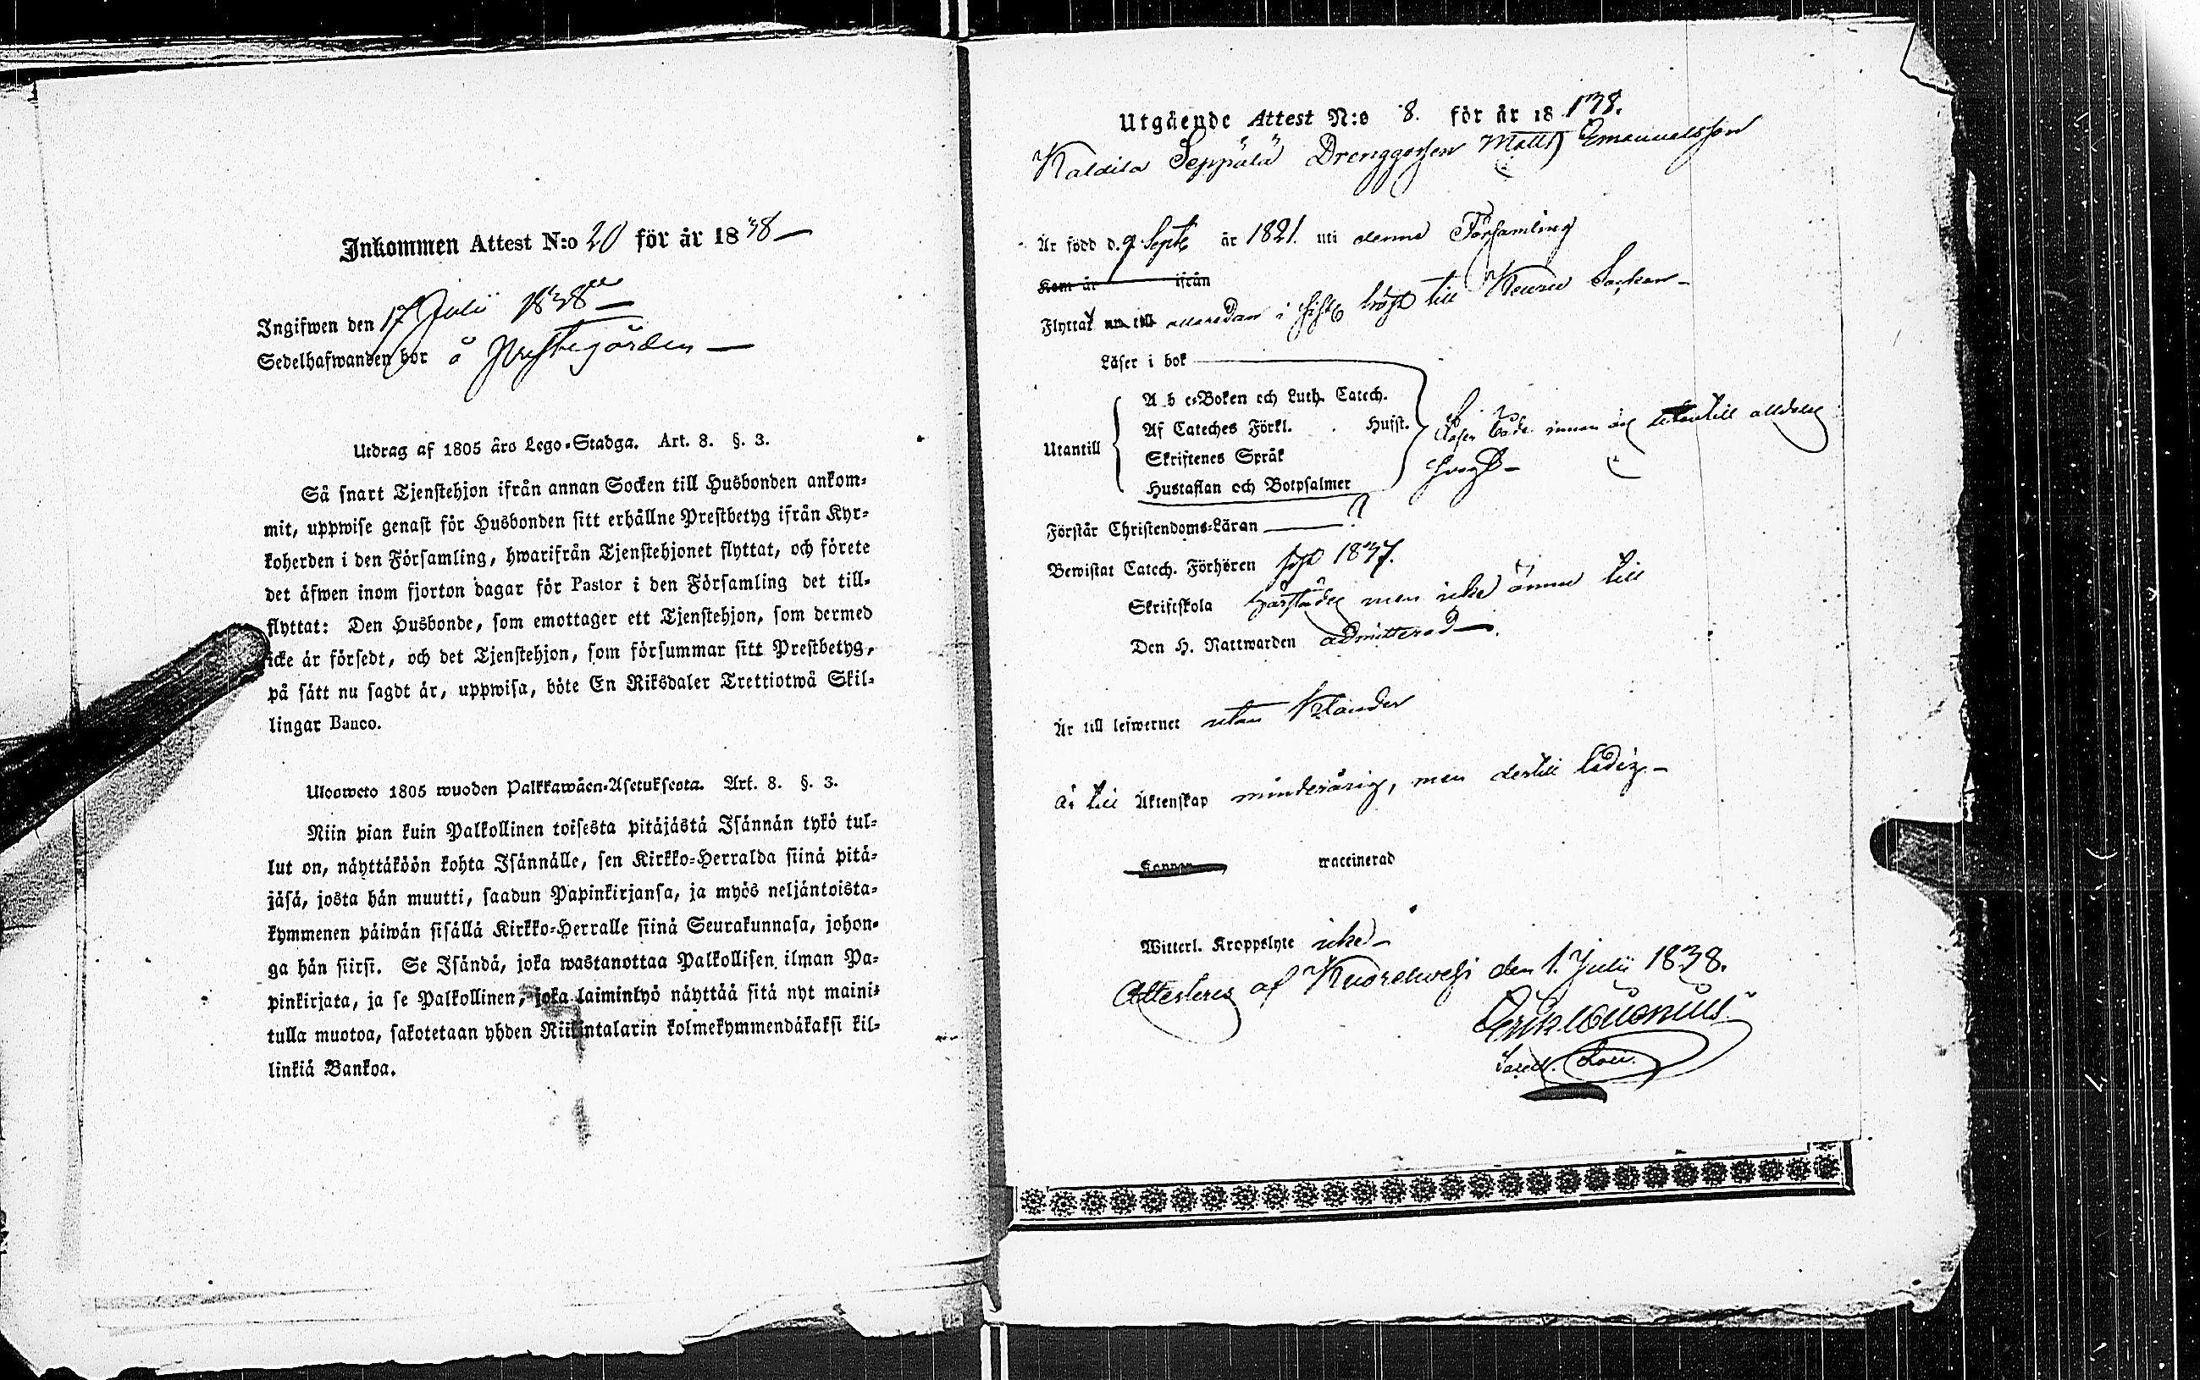 Inkommen Attest N:o 20 för år 1838
Ingifwen den 17 Julii 1838
Sedelhafwanden bor å Prestegården
Utdrag af 1805 års Lego-Stadga. Art. 8. §. 3.
Så snart Tjenstehjon ifrån annan Socken till Husbonden ankom-
mit, uppwise genast för Husbonden sitt erhållne Prestbetyg ifrån Kyr-
koherden i den Församling, hwarifrån Tjenstehjonet flyttat, och förete
det äfwen inom fjorton dagar för Pastor i den Församling det till-
flyttat: Den Husbonde, som emottager ett Tjenstehjon, som dermed
icke är försedt, och det Tjenstehjon, som försummar sitt Prestbetyg,
på sätt nu sagdt är, uppwisa, böte En Riksdaler Trettiotwå Skil-
lingar Banco.
Ulosweto 1805 wuoden Palkkawäen-Asetuksesta. Art. 8. §. 3.
Niin pian kuin Palkollinen toisesta pitäjästä Isännän tykö tul-
lut on, näyttäköön kohta Isännälle, sen Kirkko-Herralda siinä pitä-
jäsä, josta hän muutti, saadun Papinkirjansa, ja myös neljäntoista-
kymmenen päiwän sisällä Kirkko-Herralle siinä Seurakunnasa, johon-
ga hän siirsi. Se Isändä, joka wastanottaa Palkollisen ilman Pa-
pinkirjata, ja se Palkollinen, joka laiminlyö näyttää sitä nyt maini-
tulla muotoa, sakotetaan yhden Riikintalarin kolmekymmendäkaksi kil-
linkiä Bankoa.
Utgående Attest N:o 8. för år 18 138.
Kaldila Seppälä Drenggossen Matts Emanuelsson
Är född d. 9 Sept. år 1821. uti denna Församling
Kom år ifrån
Flyttat nu till allaredan i höst till Keuru Socken
Läser i bok
A b c-Boken och Luth. Catech.
Af Cateches Förkl. Hufst.
Utantill
Skriftenes Språk
Läser både innan och utantill alldeles
Hustaflan och Botpsalmer
svagt
Förstår Christendoms-Läran ?
Bewistat Catech. Förhören 1837.
Skriftskola men icke ännu till
Den H. Nattwarden admitterad
Är till lefwernet utan klander
Är till Äktenskap minderårig, men dertill ledig
Koppor waccinerad
Witterl. Kroppslyte icke
Attesteras af Kuorewesi den 1. Julii 1838.
Erik Wuonius
Sacell. Loci.